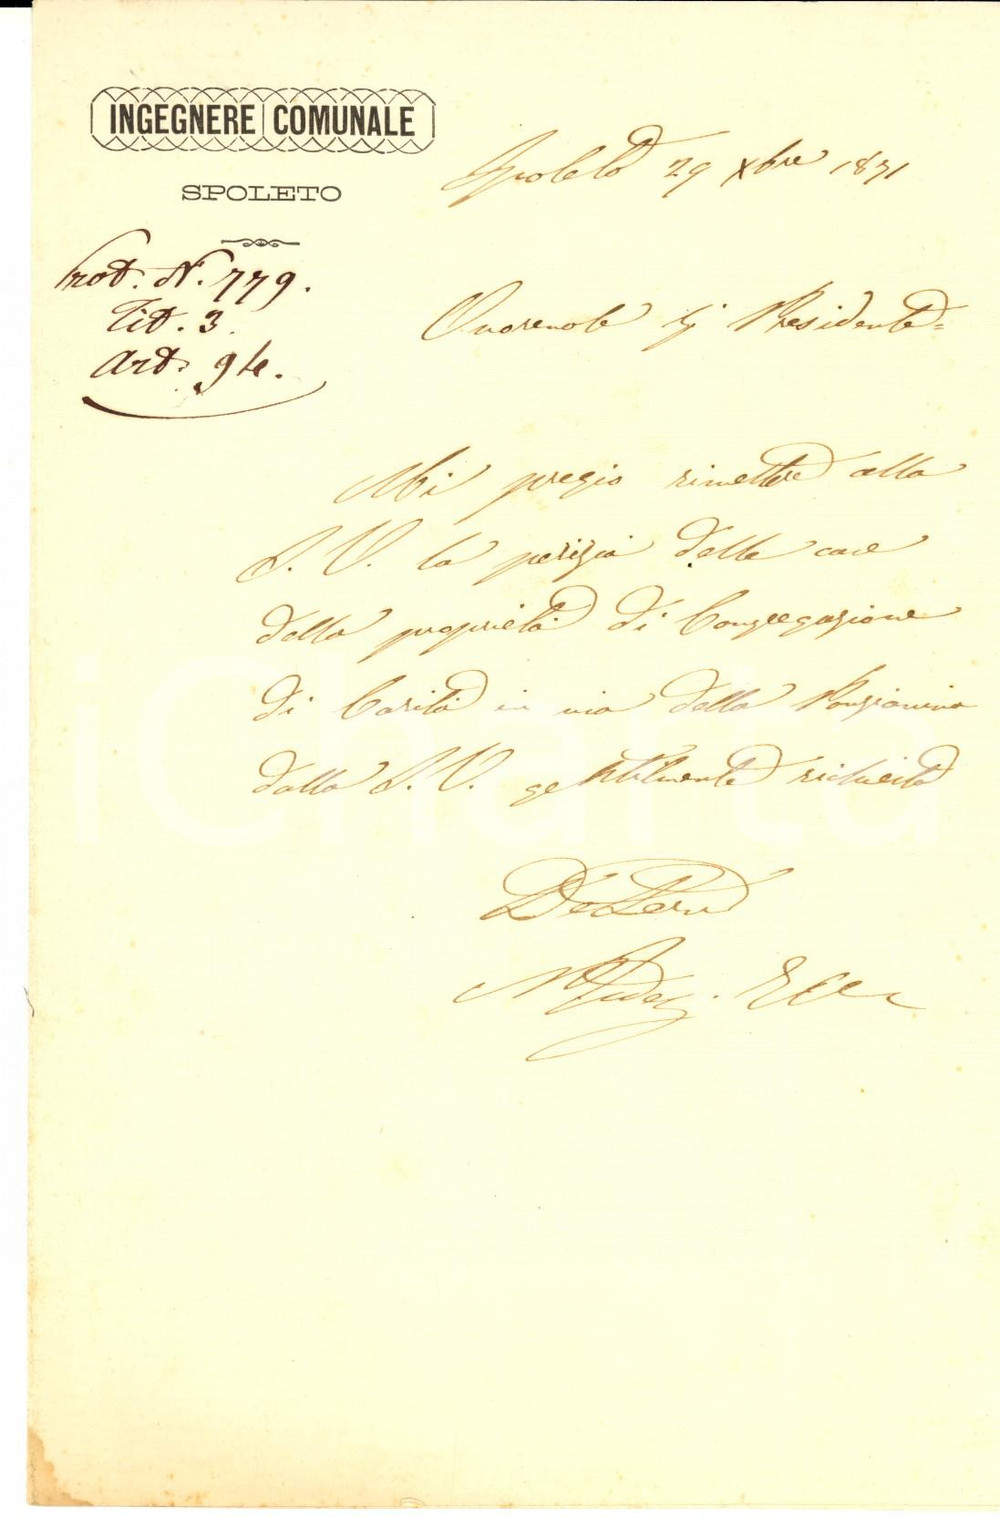 INGEGNERE COMUNALE
SPOLETO
Spoleto 29 Xbre 1871
Prot. N. 779.
Tit. 3.
Art. 94.
Onorevole Sig Presidente =
Mi pregio rimettere alla
S. V. la perizia delle case
della proprietà di Congregazione
di Carità in via della Ponzianina
dalla S. V. gentilmente richiesta
iCharta